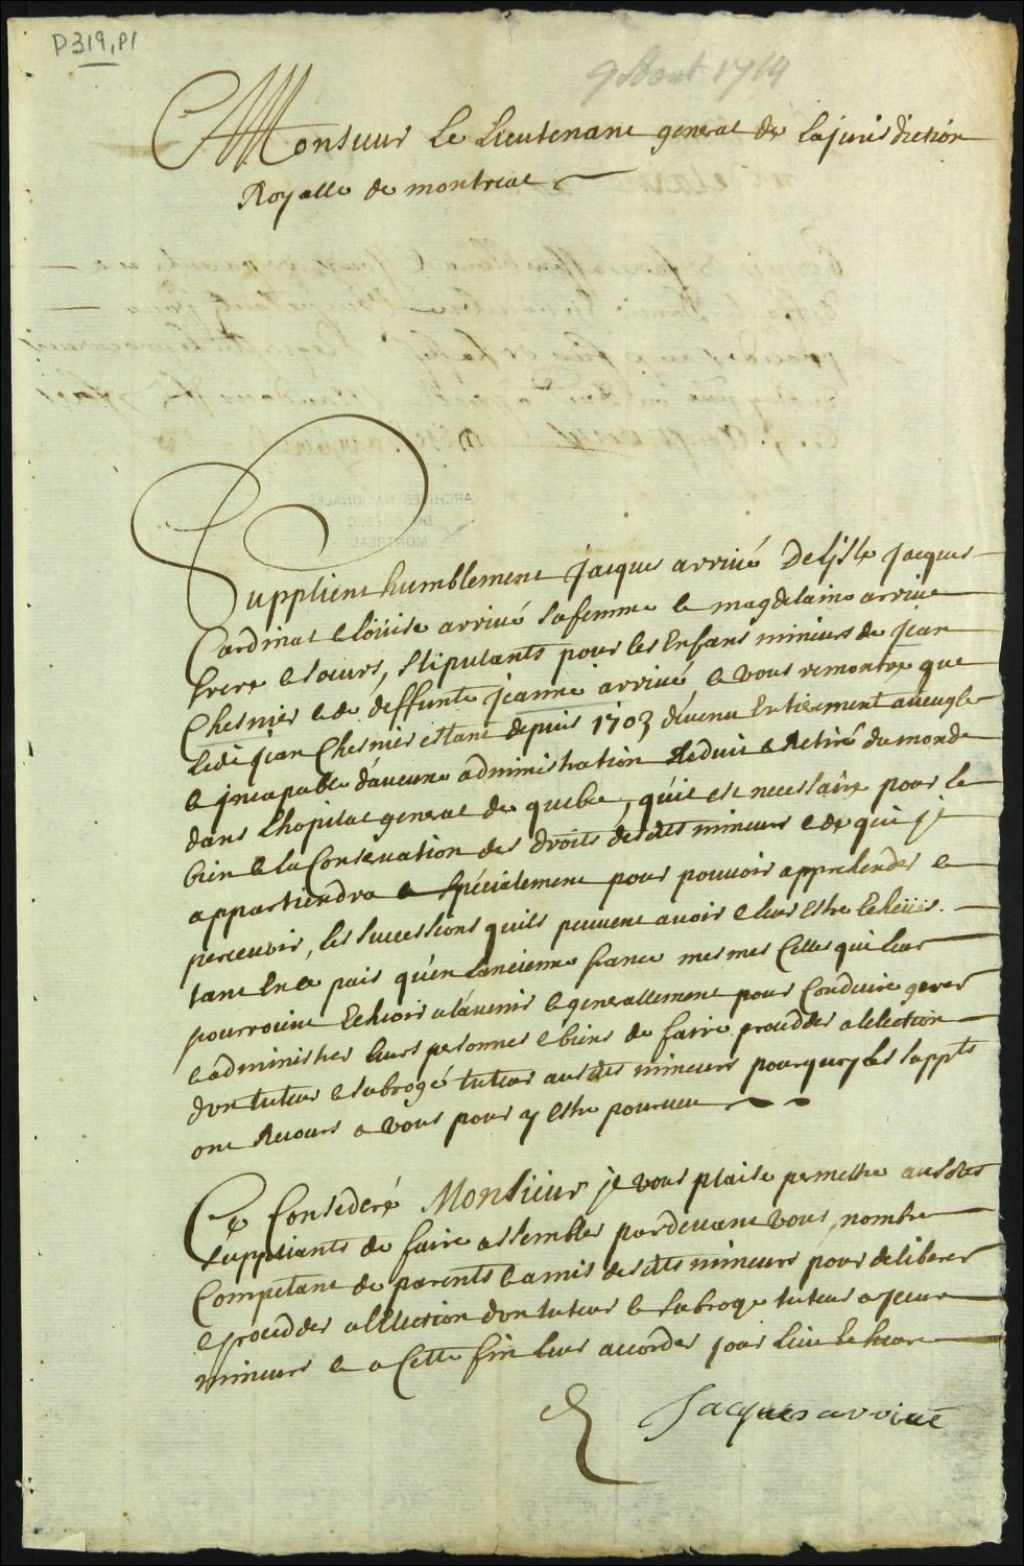 P319,P1
9 Aout 1714
Monsieur Le Lieutenant general de la jurisdiction
Royalle de montreal
ARCHIVES NATIONALES
DU QUEBEC
MONTREAL
Supplient humblement jacques arrivé Delisle jacques
Cardinal & loüise arrivé sa femme & magdelaine arrivé
frere & soeurs, stipulants pour les Enfans mineurs de jean
Chesnier & de deffunte jeanne arrivé, & vous remontre que
ledt jean Chesnier estant depuis 1703 devenu Entierement aveugle
& jncapable d'aucune administration Reduit & Retiré du monde
dans Lhopital general de quebec, qu'il est necessaire pour le
bien & la Conseruation des droits desdts mineurs & de qui jl
appartiendra & spécialement pour pouvoir apprehender &
percevoir, les successions quils peuvent avoir & leur Estre Echeües
tant En ce païs qu'en Lancienne france mesmes Celles qui leur
pourroient Echeoir a lavenir & generallement pour Conduire gerer
& administrer leurs personnes & biens de faire procedder a lelection
d'un tuteur & subrogé tuteur ausdts mineurs pourquoy les suppts
ont Recours a vous pour y estre pourveu
Ce Consideré Monsieur jl vous plaise permettre ausdts
suppliants de faire assembler pardevant vous, nombre
Compétant de parents & amis desdts mineurs pour deliberer
& procedder a lElection d'un tuteur & subrogé tuteur a jceux
mineurs & a Cette fin leur accorder jour lieu & heure
Jacques arrivé